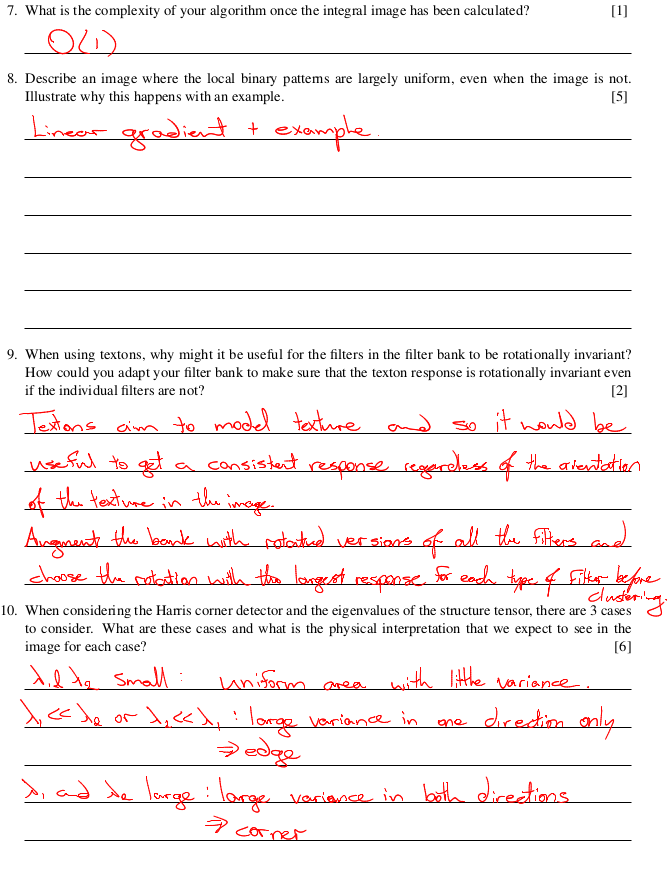 7. What is the complexity of your algorithm once the integral image has been calculated? [1]
O(1)
8. Describe an image where the local binary patterns are largely uniform, even when the image is not.
Illustrate why this happens with an example. [5]
Linear gradient + example.
9. When using textons, why might it be useful for the filters in the filter bank to be rotationally invariant?
How could you adapt your filter bank to make sure that the texton response is rotationally invariant even
if the individual filters are not? [2]
Textons aim to model texture and so it would be
useful to get a consistent response regardless of the orientation
of the texture in the image.
Augment the bank with rotated versions of all the filters and
choose the rotation with the largest response for each type of filter before
clustering.
10. When considering the Harris corner detector and the eigenvalues of the structure tensor, there are 3 cases
to consider. What are these cases and what is the physical interpretation that we expect to see in the
image for each case? [6]
λ₁ & λ₂ small : uniform area with little variance.
λ₁ << λ₂ or λ₂ << λ₁ : large variance in one direction only
⇒ edge
λ₁ and λ₂ large : large variance in both directions
⇒ corner